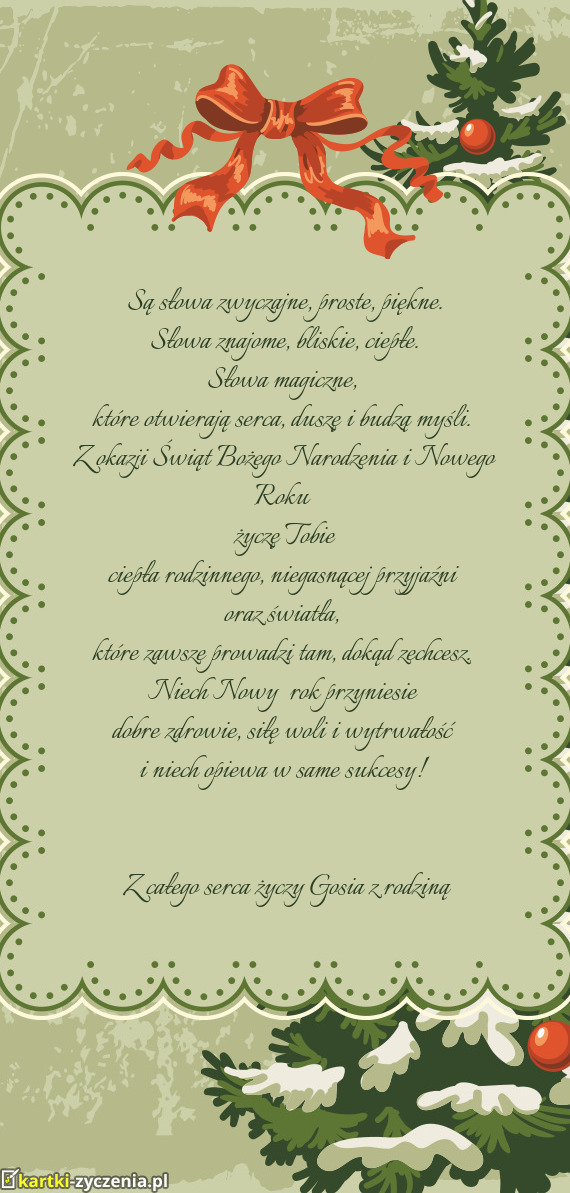 Są słowa zwyczajne, proste, piękne.
Słowa znajome, bliskie, ciepłe.
Słowa magiczne,
które otwierają serca, duszę i budzą myśli.
Z okazji Świąt Bożego Narodzenia i Nowego
Roku
życzę Tobie
ciepła rodzinnego, niegasnącej przyjaźni
oraz światła,
które zawsze prowadzi tam, dokąd zechcesz.
Niech Nowy rok przyniesie
dobre zdrowie, siłę woli i wytrwałość
i niech opiewa w same sukcesy!
Z całego serca życzy Gosia z rodziną
kartki-zyczenia.pl